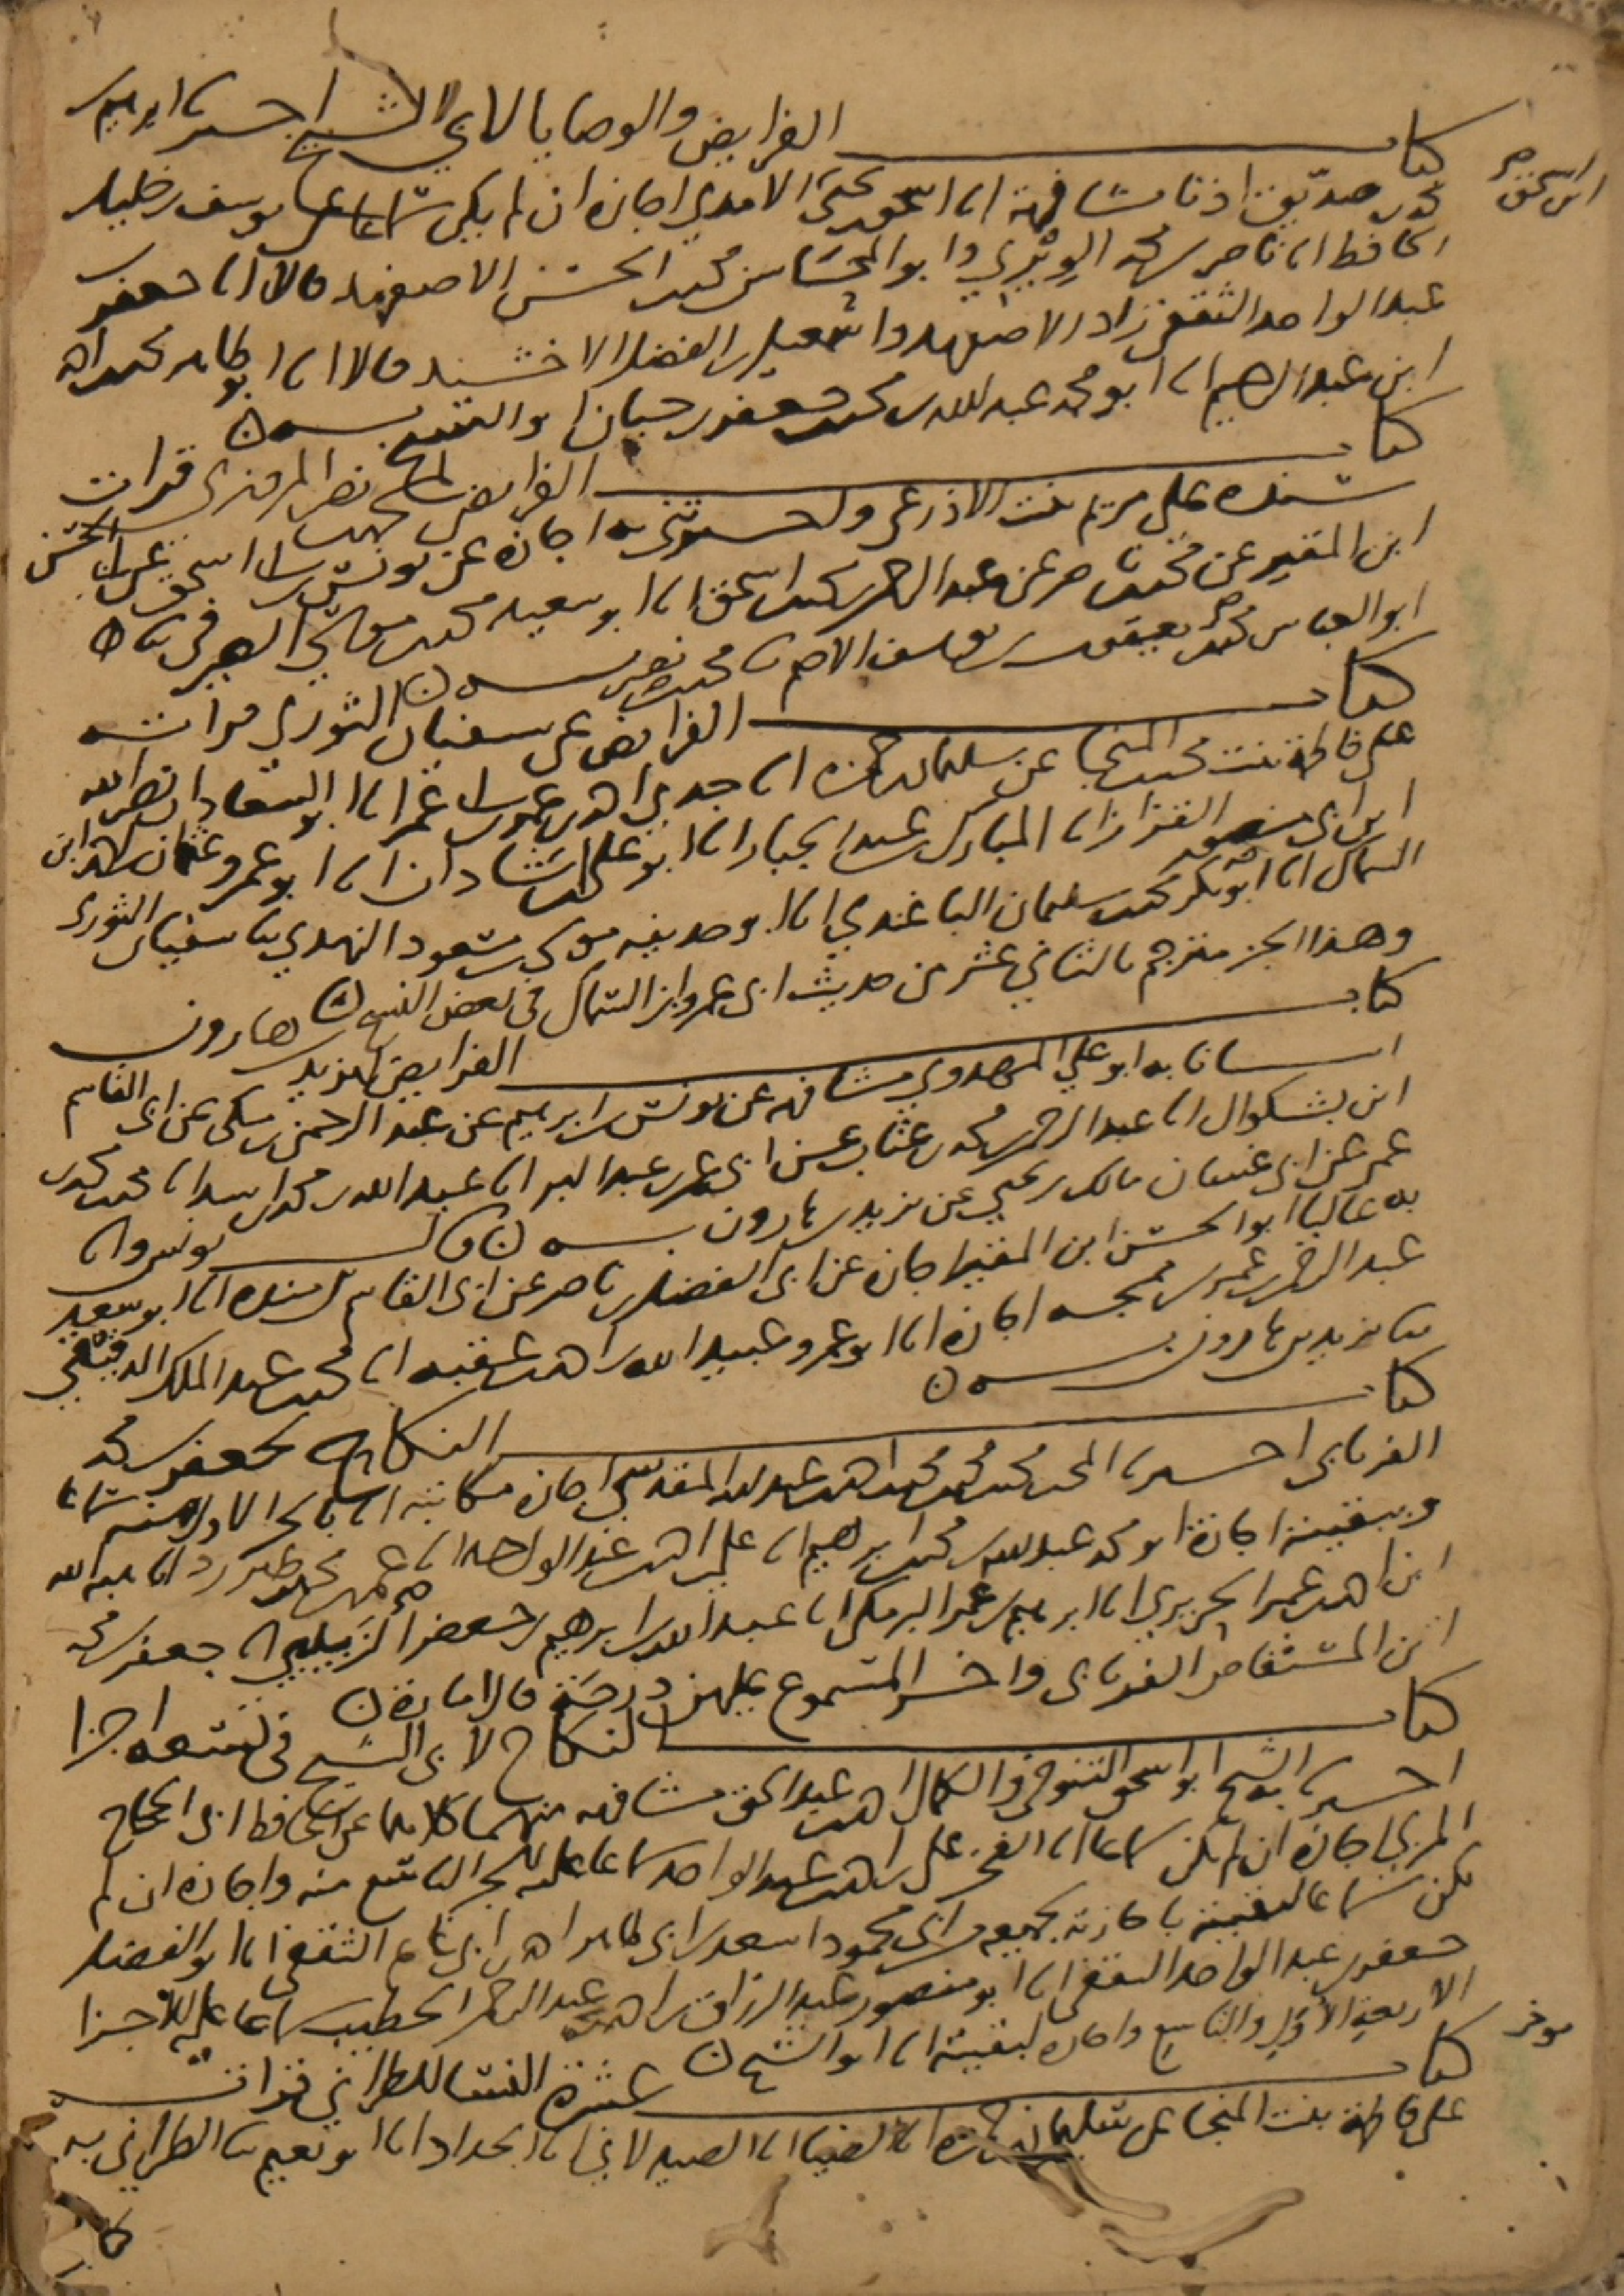 كتاب الفرايض والوصايا لابي الشيخ اخبرنا ابرهيم
ابن محمد بن صديق اذنا مشافهة انا اسحق بن يحيى الامدي اجازة ان لم يكن سماعا عن يوسف بن خليل
الحافظ انا ناصر بن محمد الويري وابو المحاسن محمد بن الحسن الاصفهبد قالا انا جعفر بن
عبد الواحد الثقفي زاد الاصفهبد واسمعيل بن الفضل الاخشيد قالا انا ابو طاهر محمد بن احمد
ابن عبد الرحيم انا ابو محمد عبد الله بن محمد بن جعفر بن حيان ابو الشيخ به
كتاب الفرايض لمحمد بن نصر المروزي قرات
سنده على مريم بنت الاذرعي واخبرتني به اجازة عن يونس بن ابي اسحق عن ابي الحسن
ابن المقير عن محمد بن ناصر عن عبد الرحمن بن محمد بن اسحق انا ابو سعيد محمد بن موسى الصيرفي ثنا
ابو العباس محمد بن يعقوب بن يوسف الاصم ثنا محمد بن نصر به
كتاب الفرايض عن سفيان الثوري قراته
على فاطمة بنت محمد بن المنجا عن سليمان بن حمزة انا جدي احمد بن عمر انا ابو السعادات نصر الله
ابن ابي منصور القزاز انا المبارك بن عبد الجبار انا ابو علي بن شاذان انا ابو عمرو عثمان بن احمد ابن
السماك انا ابو بكر محمد بن سليمان الباغندي انا ابو حذيفه موسى بن مسعود النهدي ثنا سفيان الثوري
وهذا الجز مترجم بالثاني عشر من حديث ابي عمرو ابن السماك في بعض النسخ
كتاب الفرايض ليزيد بن هارون
انبانا به ابو علي المهدوي مشافهة عن يونس بن ابرهيم عن عبد الرحمن بن مكي عن ابي القاسم
ابن بشكوال انا عبد الرحمن بن محمد بن عتاب عن ابي عمر بن عبد البر انا عبد الله بن محمد بن اسد انا محمد بن محمد
عمر عن ابي غسان مالك بن يحيى عن يزيد بن هارون به قال يونس وانا
به عاليا ابو الحسن ابن المقير اجازة عن ابي الفضل بن ناصر عن ابي القاسم بن منده انا ابو سعيد
عبد الرحمن بن عمر بن ممجه اجازة انا ابو عمرو عبيد الله بن احمد بن عقبه انا محمد بن عبد الملك الدقيقي
ثنا يزيد بن هارون به
كتاب النكاح لجعفر بن محمد
الفريابي اخبرنا المحب محمد بن محمد بن محمد بن احمد بن عبد الله المقدسي اجازة مكاتبة انا بالجز الاول منه سماعا
وببقيته اجازة ابو محمد عبد الله بن محمد بن ابرهيم انا علي بن احمد بن عبد الواحد انا عمر بن محمد بن طبرزد انا هبة الله
ابن احمد بن عمر الحريري انا ابرهيم بن عمر البرمكي انا عبد الله بن ابرهيم بن جعفر الزبيبي انا جعفر بن محمد
ابن المستفاض الفريابي واخر المسموع
كتاب النكاح لابي الشيخ في تسعة اجزا
اخبرنا به الشيخ ابو اسحق التنوخي والكمال احمد بن عبد الحق مشافهة منهما كلاهما عن الحافظ ابي الحجاج
المزي اجازة ان لم يكن سماعا انا الفخر علي بن احمد بن عبد الواحد سماعا عليه للجز التاسع منه واجازة ان لم
يكن سماعا لبقيته باجازته لجميعه من ابي محمود اسعد بن ابي طاهر احمد بن ابي غانم الثقفي انا ابو الفضل
جعفر بن عبد الواحد الثقفي انا ابو منصور عبد الرزاق بن احمد بن عبد الرحمن الخطيب سماعا عليه للاجزا
الاربعة الاول والتاسع واجازة لبقيته انا ابو الشيخ
كتاب عشرة النسا للطبراني قراته
على فاطمة بنت المنجا عن سليمان بن حمزة انا الضيا انا الصيدلاني انا الحداد انا ابو نعيم ثنا الطبراني به
كتاب